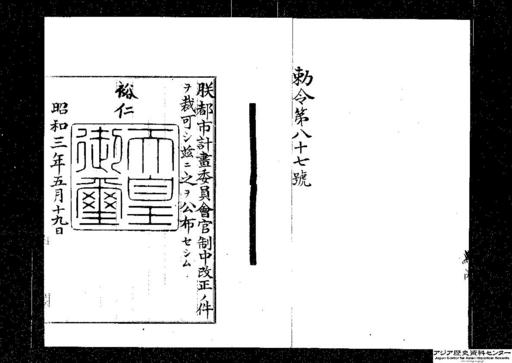 勅令第八十七號
朕都市計畫委員會官制中改正ノ件
ヲ裁可シ茲ニ之ヲ公布セシム
裕仁
天皇
御璽
昭和三年五月十九日
アジア歴史資料センター
Japan Center for Asian Historical Records